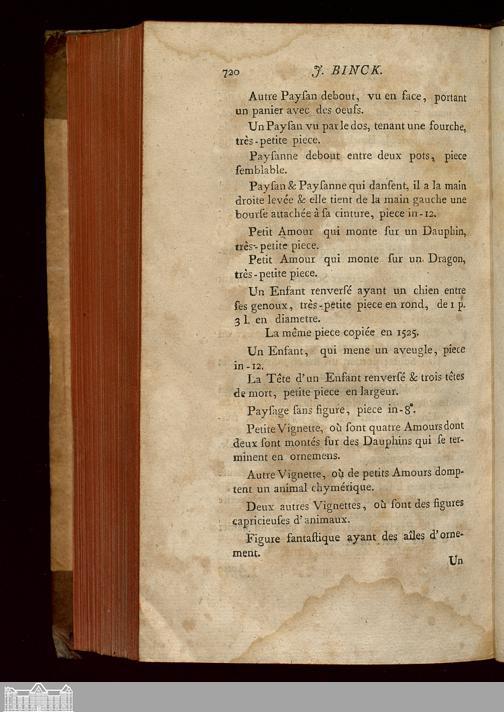 720 J. BINCK.
Autre Payſan debout, vu en face, portant
un panier avec des oeufs.
Un Payſan vu par le dos, tenant une fourche,
très-petite piece.
Payſanne debout entre deux pots, piece
ſemblable.
Payſan & Payſanne qui danſent, il a la main
droite levée & elle tient de la main gauche une
bourſe attachée à ſa cinture, piece in-12.
Petit Amour qui monte ſur un Dauphin,
très-petite piece.
Petit Amour qui monte ſur un Dragon,
très-petite piece.
Un Enfant renverſé ayant un chien entre
ſes genoux, très-petite piece en rond, de 1 p.
3 l. en diametre.
La même piece copiée en 1525.
Un Enfant, qui mene un aveugle, piece
in-12.
La Tête d'un Enfant renverſé & trois têtes
de mort, petite piece en largeur.
Payſage ſans figure, piece in-8°.
Petite Vignette, où ſont quatre Amours dont
deux ſont montés ſur des Dauphins qui ſe ter-
minent en ornemens.
Autre Vignette, où de petits Amours domp-
tent un animal chymérique.
Deux autres Vignettes, où ſont des figures
capricieuſes d'animaux.
Figure fantaſtique ayant des aîles d'orne-
ment.
Un